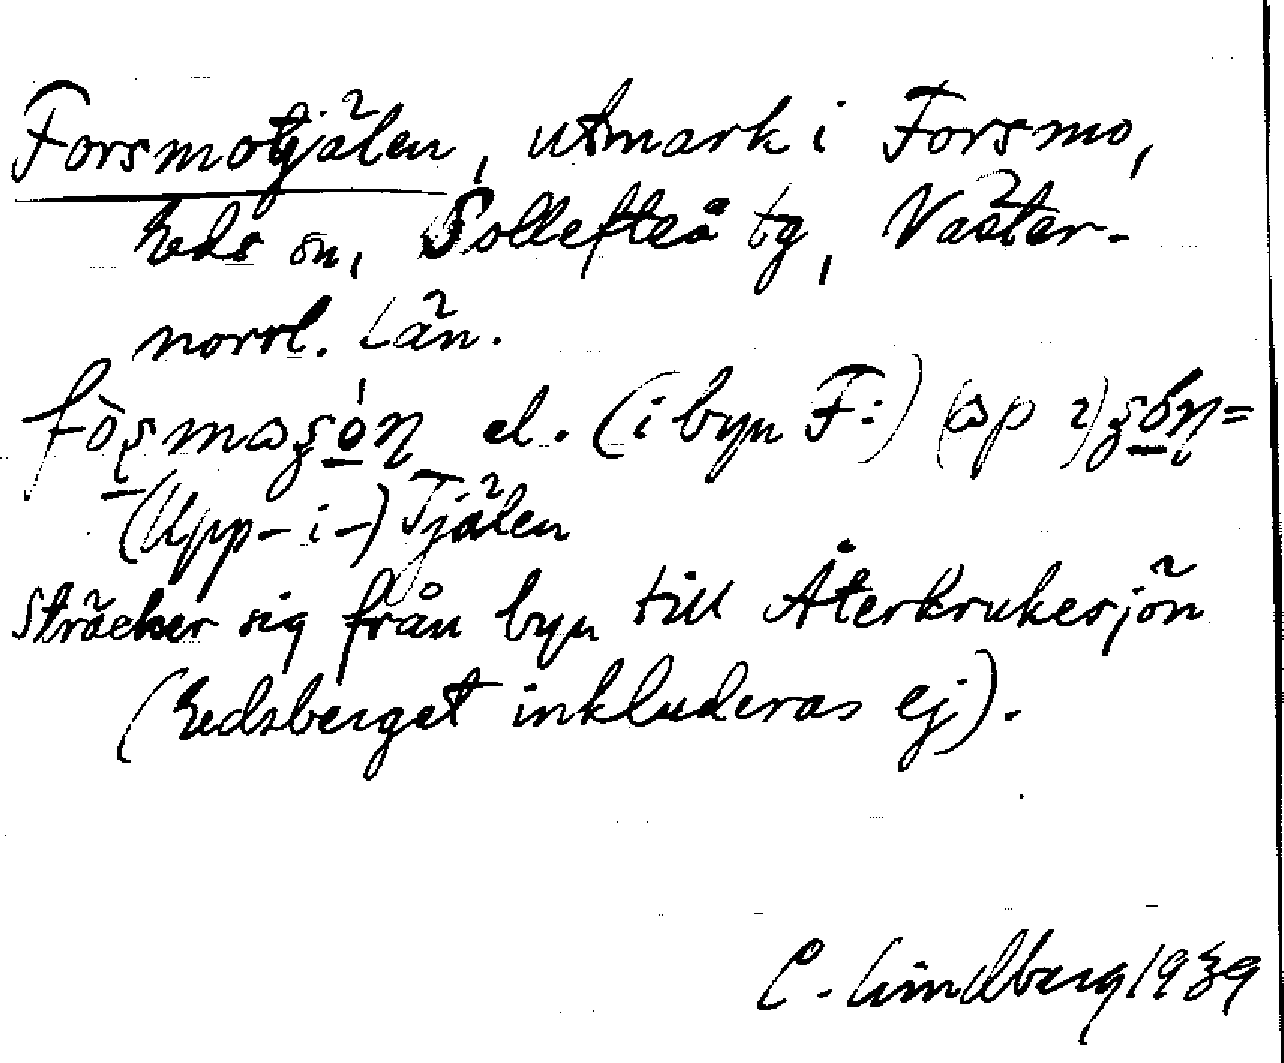 Forsmotjälen, utmark i Forsmo,
Eds sn, Sollefteå tg, Väster-
norrl. Län.
el. (i byn F:)
(Upp- i -) Tjälen
sträcker sig från byn till Återbrukersjön
(Edsberget inkluderas ej).
C. Lindberg 1939